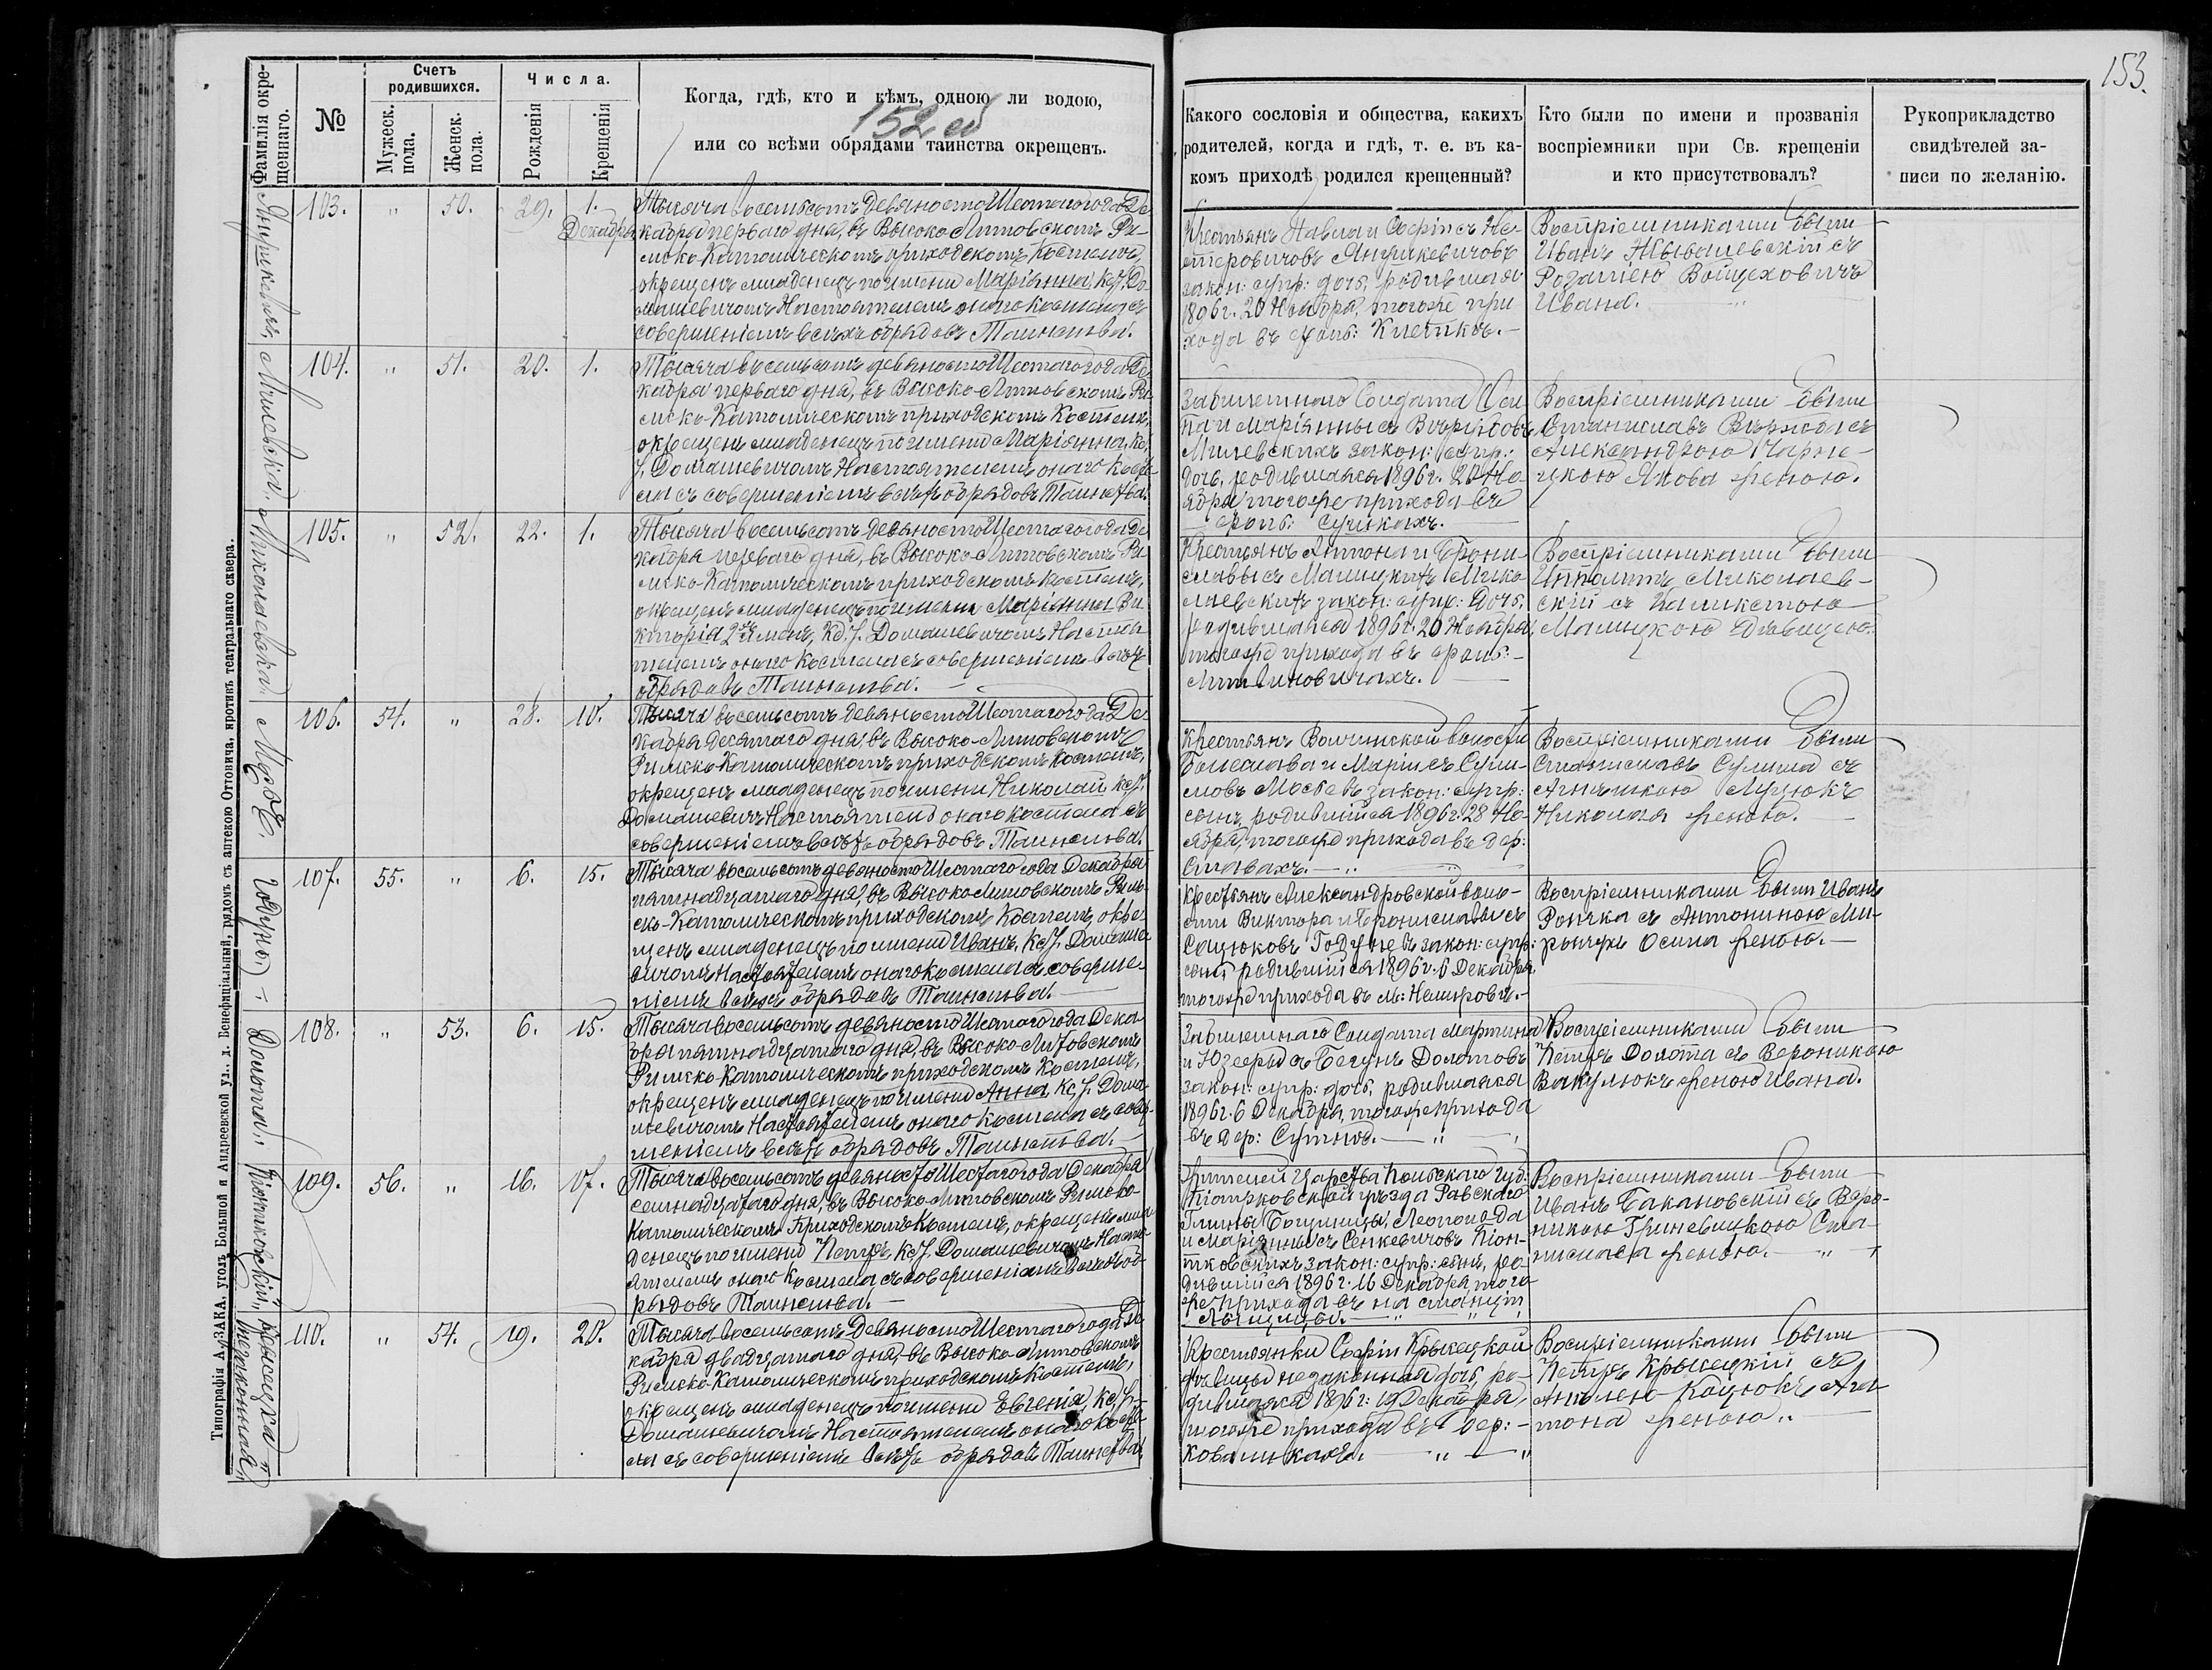 153.
Фамилія окре-
щеннаго.
№
Счетъ
родившихся.
Мужеск.
пола.
Женск.
пола.
Числа.
Рожденія
Крещенія
Когда, гдѣ, кто и кѣмъ, одною ли водою,
152 об
или со всѣми обрядами таинства окрещенъ.
Какого сословія и общества, какихъ
родителей, когда и гдѣ, т. е. въ ка-
комъ приходѣ родился крещенный?
Кто были по имени и прозванія
воспріемники при Св. крещеніи
и кто присутствовалъ?
Рукоприкладство
свидѣтелей за-
писи по желанію.
103. " 50. 29. 1.
Декабря
Тысяча восемьсотъ девяносто Шестаго года Де
кабря перваго дня, въ Высоко-Литовскомъ Ри-
мско-Католическомъ приходскомъ Костелѣ,
окрещенъ младенецъ по имени Маріянна, кс. J. До
машевичомъ Настоятелемъ онаго костела съ
совершеніемъ всѣхъ обрядовъ Таинства.
Крестьянъ Павла и Софіи съ Не-
стеровичовъ Янушкевичовъ
закон: супр: дочь, родившаяся
1896 г. 20 Ноября, тогоже при
хода въ
Воспріемниками были
Иванъ съ
Розалею Войцеховичъ
Ивана.
Милевскія.
104. " 51. 20. 1.
Тысяча восемьсотъ девяносто Шестаго года Де
кабря перваго дня, въ Высоко-Литовскомъ Ри
мско-Католическомъ приходскомъ Костелѣ,
окрещенъ младенецъ по имени Маріянна, кс.
J. Домашевичомъ Настоятелемъ онаго косте
ла съ совершеніемъ всѣхъ обрядовъ Таинства.
Забилетнаго Солдата Оси
па и Маріянны съ
Милевскихъ закон: супр:
дочь, родившаяся 1896 г. 20 Но-
ября тогоже прихода въ
Воспріемниками были
Станиславъ съ
Александрою Чарне-
цкою Якова женою.
Николаевская.
105. " 52. 22. 1.
Тысяча восемьсотъ девяносто Шестаго года Де
кабря перваго дня, въ Высоко-Литовскомъ Ри
мско-Католическомъ приходскомъ костелѣ,
окрещенъ младенецъ по имени Маріянна Ви
кторія 2хъ именъ, кс. J. Домашевичомъ Настоя
телемъ онаго костела съ совершеніемъ всѣхъ
обрядовъ Таинства.
Крестьянъ Антона и Брони-
славы съ Малицкихъ Мико
лаевскихъ закон: супр: дочь,
родившаяся 1896 г. 20 Ноября,
тогоже прихода въ
Литвиновичахъ.
Воспріемниками были
Ипполитъ Миколаев-
скій съ Каликстою
Малицкою дѣвицею.
106. 54. " 28. 10.
Тысяча восемьсотъ девяносто Шестаго года Де
кабря десятаго дня, въ Высоко-Литовскомъ
Римско-Католическомъ приходскомъ костелѣ,
окрещенъ младенецъ по имени Николай кс. J.
Домашевичъ Настоятель онаго костела съ
совершеніемъ всѣхъ обрядовъ Таинства.
Крестьянъ Волчинской волости
Болеслава и Маріи съ Сули-
мовъ закон: супр:
сынъ, родившійся 1896 г. 28 Но-
ября, тогоже прихода въ дер:
Ставахъ.
Воспріемниками были
Станиславъ Сулима съ
Агнешкою Муцюкъ
Николая женою.
Годунъ.
107. 55. " 6. 15.
Тысяча восемьсотъ девяносто Шестаго года Декабря
пятнадцатаго дня, въ Высоко-Литовскомъ Рим-
ско-Католическомъ приходскомъ Костелѣ, окре-
щенъ младенецъ по имени Иванъ, кс. J. Домаше
вичомъ Настоятелемъ онаго костела съ соверше-
ніемъ всѣхъ обрядовъ Таинства.
Крестьянъ Александровской воло-
сти Виктора и Брониславы съ
Сацюковъ Годуновъ закон: супр:
сынъ родившійся 1896 г. 6 Декабря
тогоже прихода въ м: Немировѣ.
Воспріемниками были Иванъ
съ Антониною Ми-
Осипа женою.
Долота.
108. " 53. 6. 15.
Тысяча восемьсотъ девяносто Шестаго года Дека
бря пятнадцатаго дня, въ Высоко-Литовскомъ
Римско-Католическомъ приходскомъ Костелѣ,
окрещенъ младенецъ по имени Анна кс. J. Дома-
шевичомъ Настоятелемъ онаго костела съ совер-
шеніемъ всѣхъ обрядовъ Таинства.
Забилетнаго Солдата Мартина
и Юзефы съ Бегунъ Долотовъ
закон: супр: дочь, родившаяся
1896 г. 6 Декабря, тогоже прихода
въ дер: Сутно.
Воспріемниками были
Петръ Долота съ Вероникою
Вакулюкъ женою Ивана.
Піонтковскій.
109. 56. " 16. 17.
Тысяча восемьсотъ девяносто Шестаго года Декабря
семнадцатаго дня, въ Высоко-Литовскомъ Римско-
Католическомъ Приходскомъ Костелѣ, окрещенъ мла
денецъ по имени Петръ, кс. J. Домашевичомъ Насто-
ятелемъ онаго костела съ совершеніемъ всѣхъ об-
рядовъ Таинства.
Жителей Царства Польскаго Губ:
Піотрковской уѣзда Равскаго
Гмины Леопольда
и Маріянны съ Сенкевичовъ Піон-
тковскихъ закон: супр: сынъ, ро-
дившійся 1896 г. 16 Декабря, того
же прихода въ на станціи
Воспріемниками были
Иванъ Бакановскій съ Веро-
никою Гриневицкою Ста-
нислава женою.
Крысецкая
незаконная
110. " 54. 19. 20.
Тысяча восемьсотъ Девяносто Шестаго года Де
кабря двадцатаго дня, въ Высоко-Литовскомъ
Римско-Католическомъ приходскомъ Костелѣ,
окрещенъ младенецъ по имени Евгенія, кс. J.
Домашевичомъ Настоятелемъ онаго косте
ла съ совершеніемъ всѣхъ обрядовъ Таинства.
Крестьянки Софіи Крысецкой
дѣвицы незаконная дочь, ро-
дившаяся 1896 г: 19 Декабря,
тогоже прихода въ дер:
Коваликахъ.
Воспріемниками были
Петръ Крысецкій съ
Анелею Кацюкъ Ан
тона женою.
Типографія А. ДЗАКА, уголъ Большой и Андреевской ул., д. Бенефиціальный, рядомъ съ аптекою Оттовича, противъ театральнаго сквера.